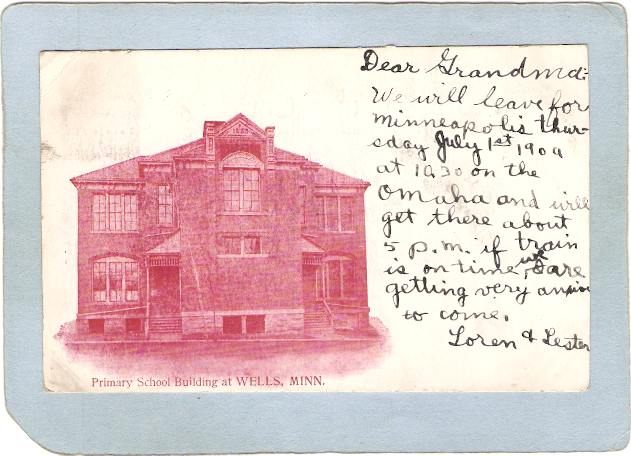 Dear Grandma:
We will leave for
Minneapolis thur-
sday July 1st 1909
at 10.30 on the
Omaha and will
get there about
5 p.m. if train
is on time, we are
getting very anxious
to come.
Loren & Lester
Primary School Building at WELLS, MINN.